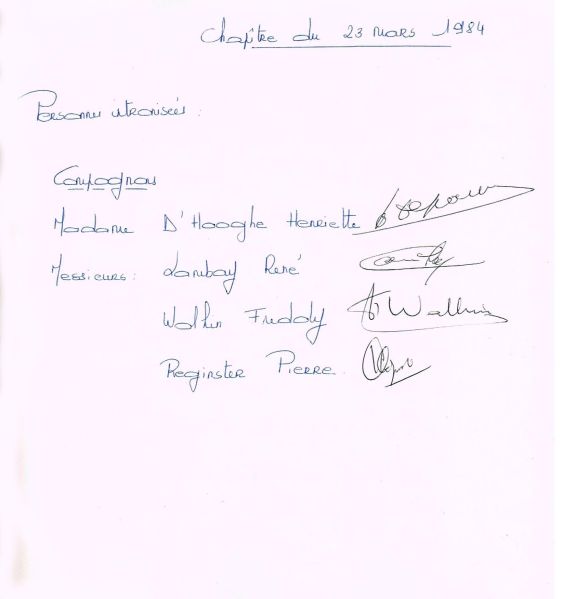 Chapître du 23 mars 1984
Personnes intronisées :
Compagnons
Madame D'Hooghe Henriette
Messieurs : Lambay René
Wallin Freddy Wallin
Reginster Pierre.